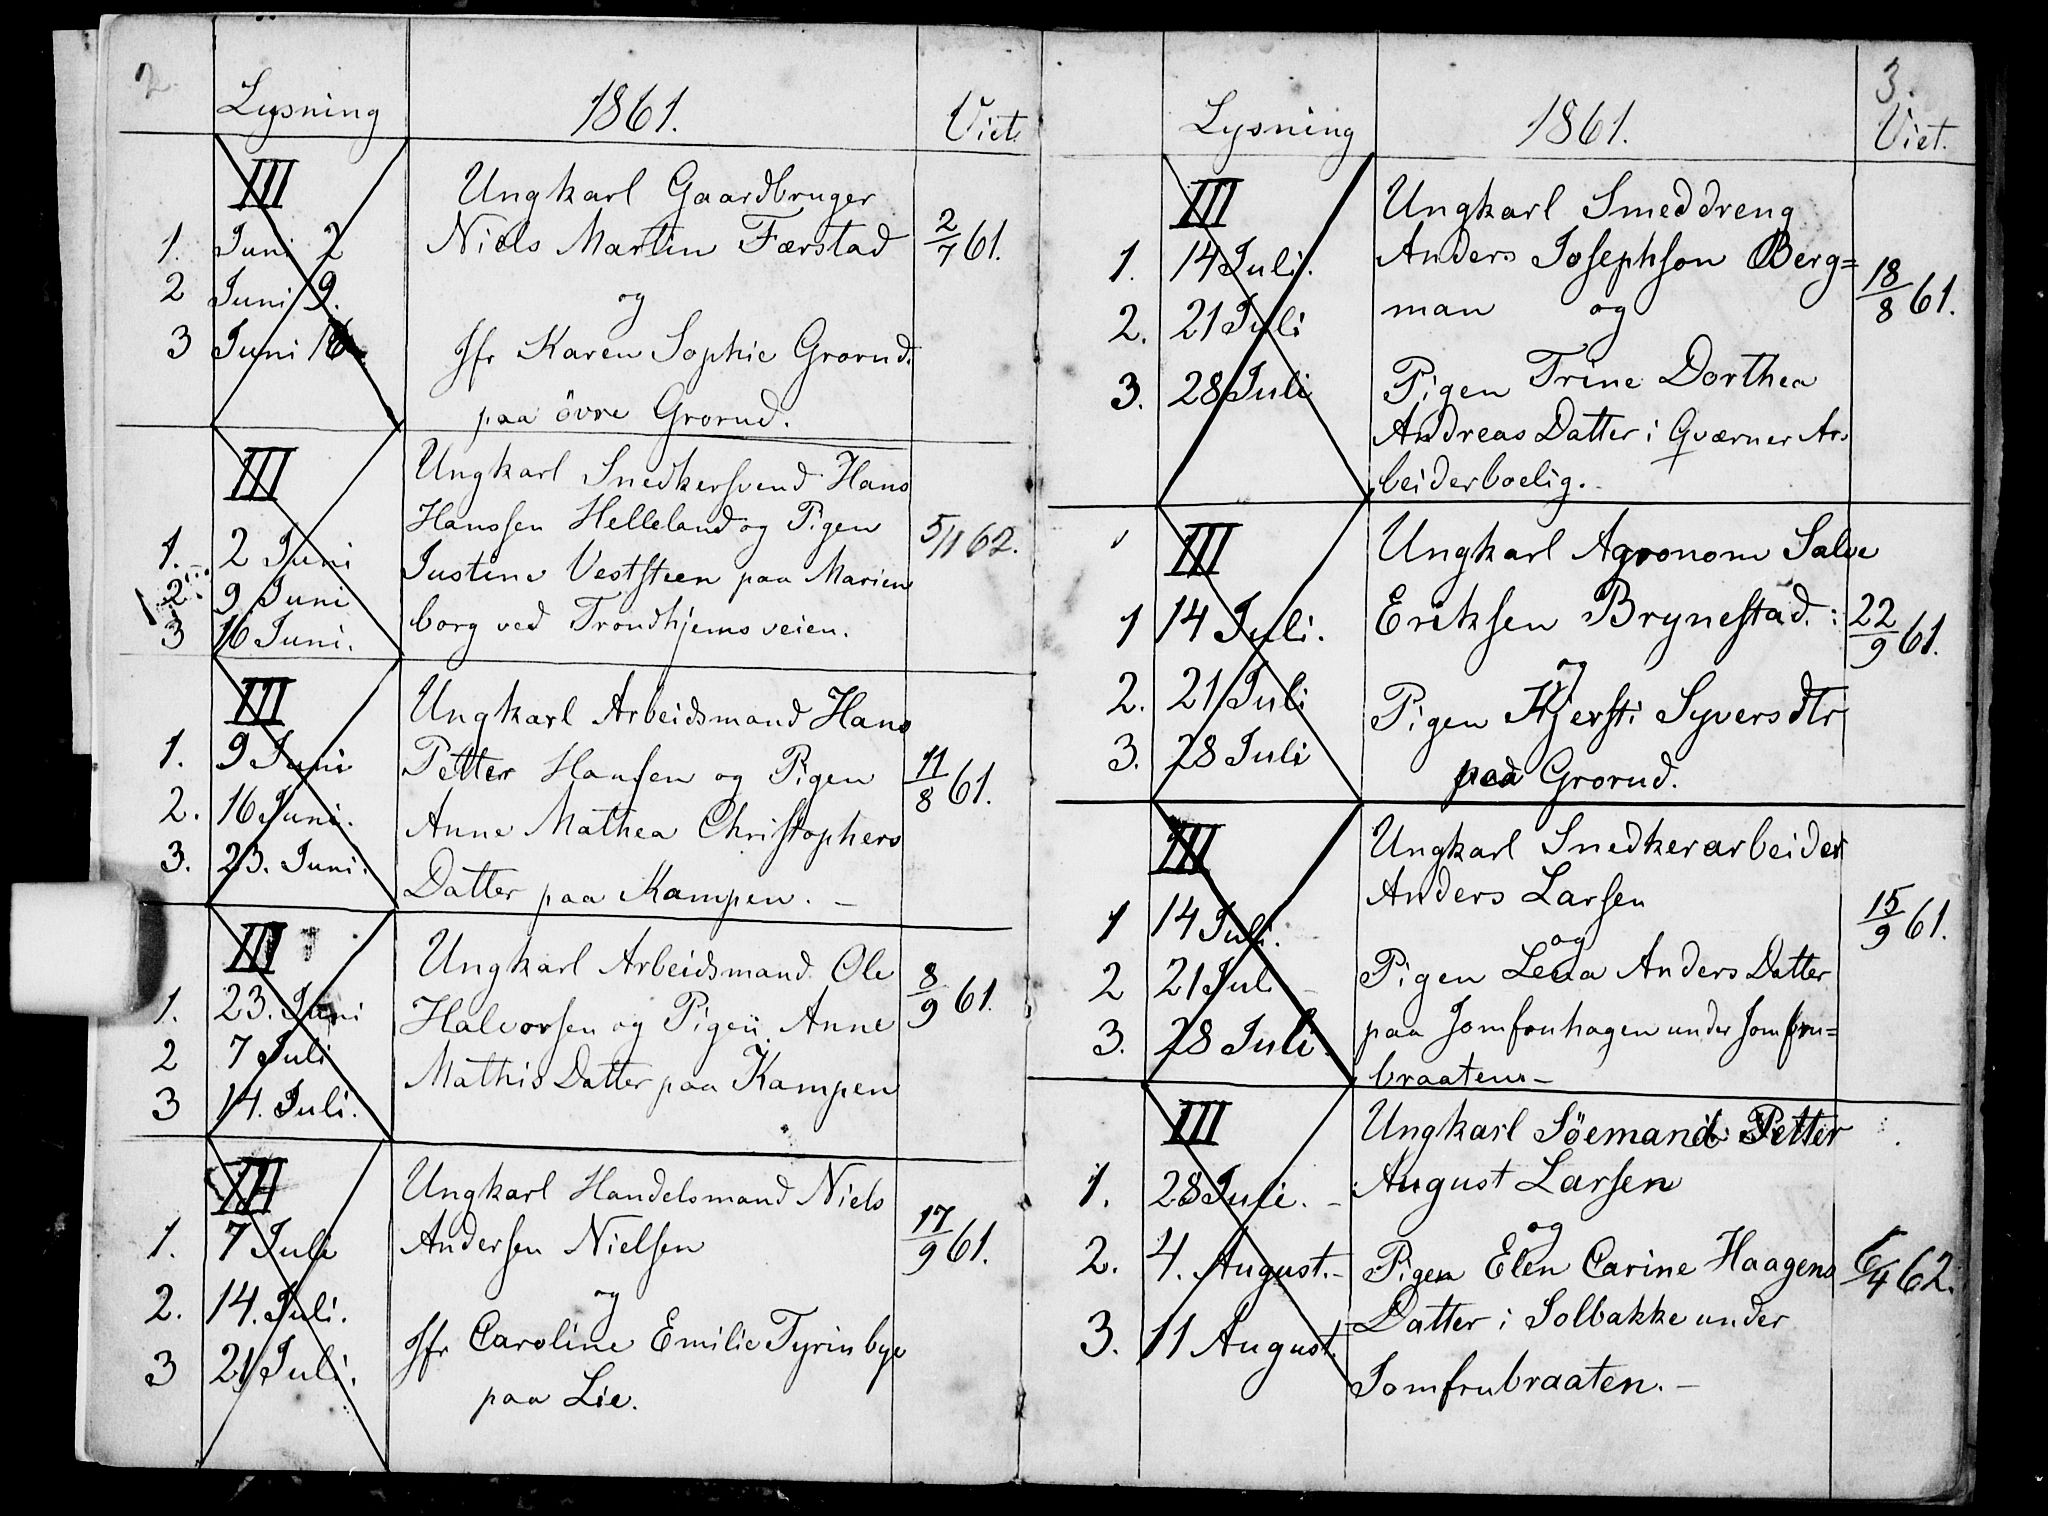 2.
Lysning 1861. Viet.
III Ungkarl Gaardbruger
1. Juni 2 Niels Martin Færstad 2/7 61.
2 Juni 9. og
3 Juni 16. Jfr Karen Sophie Grorud.
paa övre Grorud.
III Ungkarl Snedkersvend Hans
Hanssen Helleland og Pigen 5/11 62.
1. 2 Juni Justine Veststeen paa Marien
2 9 Juni borg ved Trondhjemsveien.
3 16 Juni.
III Ungkarl Arbeidsmand Hans
1. 9 Juni Petter Hansen og Pigen 11/8 61.
2. 16 Juni. Anne Mathea Christophers
3. 23. Juni. Datter paa Kampen. –
III Ungkarl Arbeidsmand Ole 8/9 61.
1. 23. Juni Halvorsen og Pigen Anne
2 7 Juli Mathis Datter paa Kampen
3 14. Juli.
III Ungkarl Handelsmand Niels
1. 7 Juli Andersen Nielsen 17/9 61.
2. 14. Juli. og
3 21 Juli. Jfr Caroline Emilie Tyrin bye
paa Lie.
3.
Lysning 1861. Viet.
III Ungkarl Smeddreng
1. 14 Juli. Anders Josephson Berg= 18/8 61.
2. 21 Juli man og
3. 28 Juli Pigen Trine Dorthea
Andreas Datter i Qværner Ar-
beiderboelig.
III Ungkarl Agronom Salve
1 14 Juli. Eriksen Brynestad. 22/9 61.
og
2. 21 Juli Pigen Kjersti Syversdtr
3. 28 Juli paa Grorud.
III Ungkarl Snedkerarbeider
Anders Larsen 15/9 61.
1 14 Juli. og
2 21 Juli Pigen Lena Anders Datter
3. 28 Juli. paa Jomfruhagen under Jomfru=
braaten –
III Ungkarl Söemand Petter
1. 28 Juli. – August Larsen
og
2. 4. August. – Pigen Elen Carine Haagens 6/4 62.
3. 11 August. Datter i Solbakke under
Jomfrubraaten. –